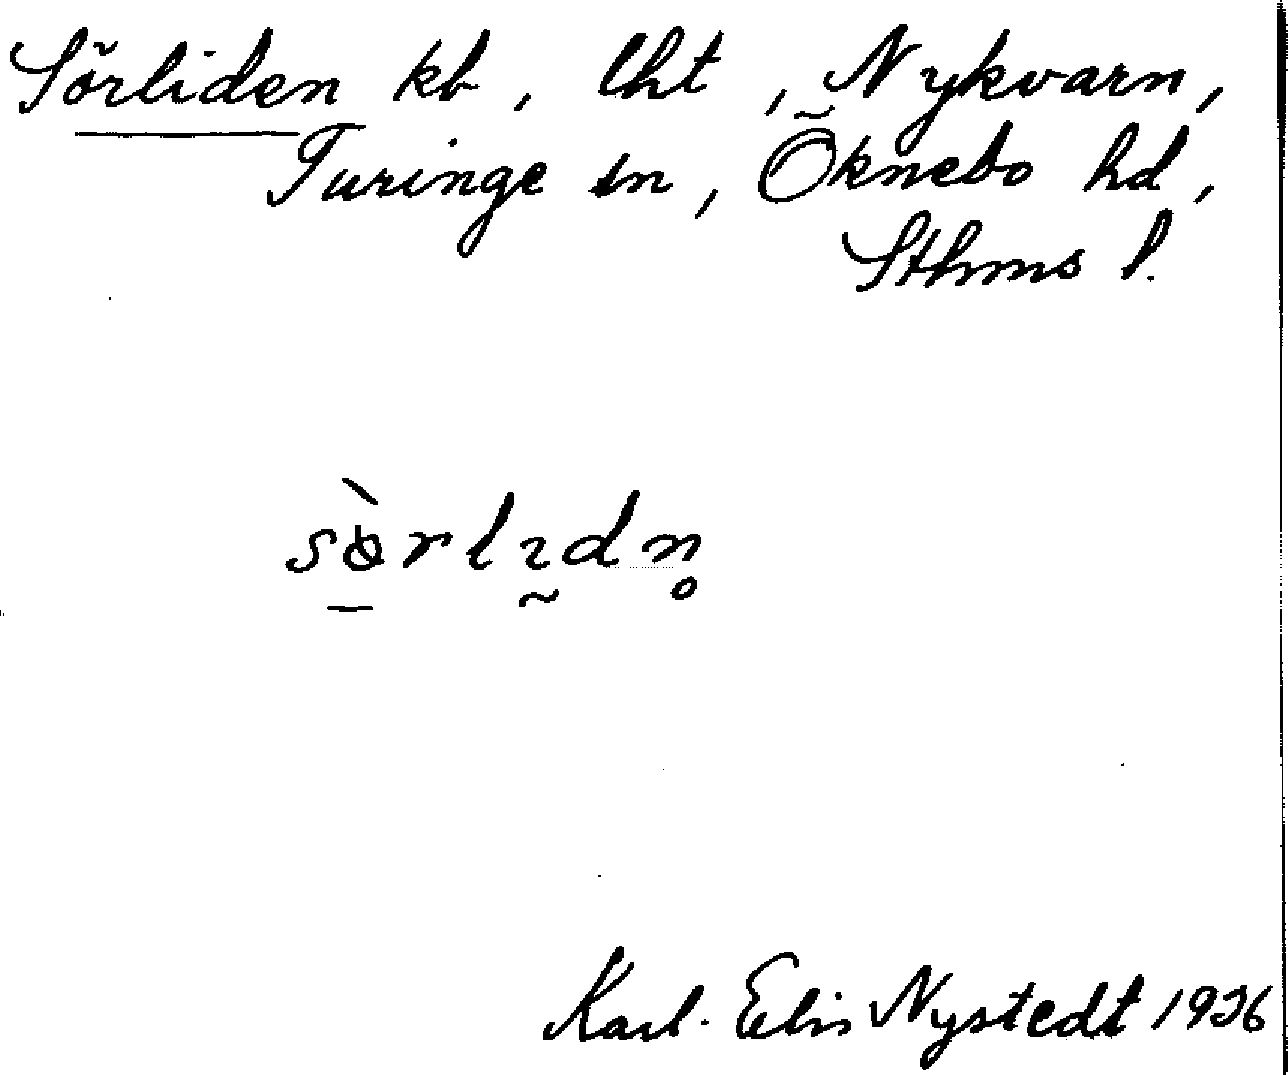 Sörliden kb, lht, Nykvarn,
Turinge sn, Öknebo hd,
Sthms l.
sòrlıdn̥
Karl-Elis Nystedt 1936